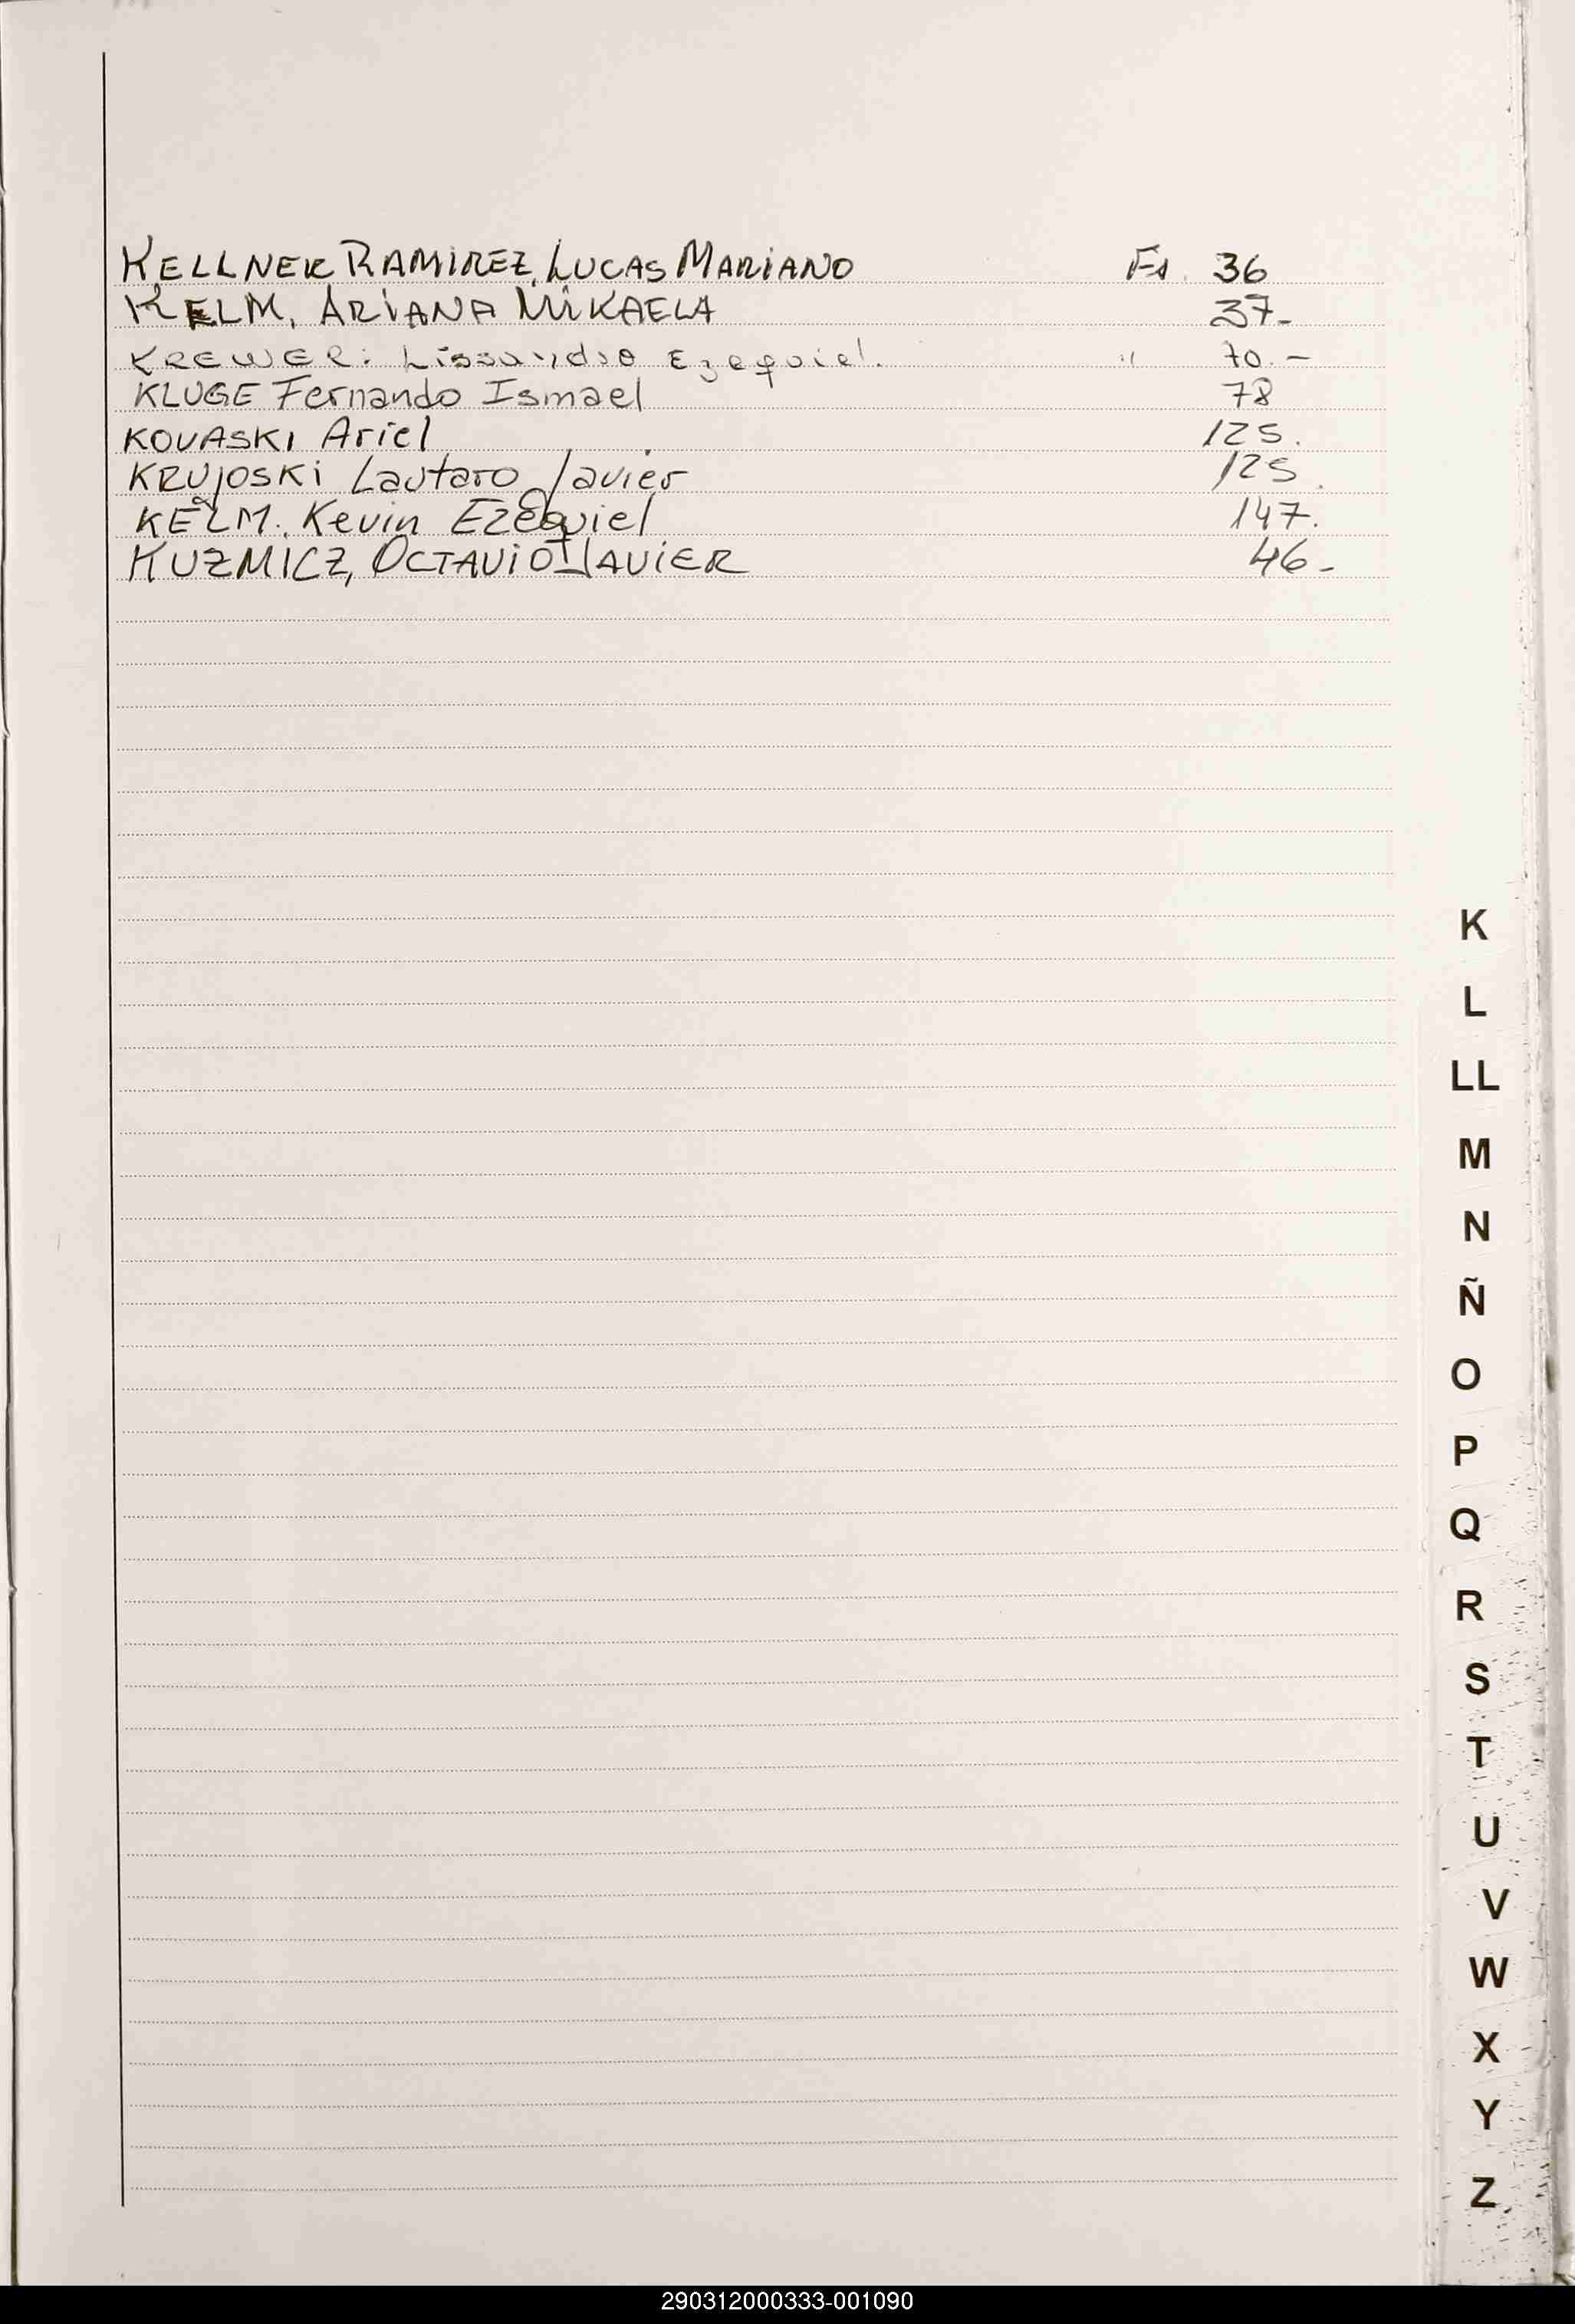 KELLNER RAMIREZ, LUCAS MARIANO Fs. 36
KELM, ARIANA MIKAELA 37-
KREWER: Lissandro Ezequiel. " 70.-
KLUGE Fernando Ismael 78
KOVASKI Ariel 125.
KRUJOSKI Lautaro Javier 125.
KELM. Kevin Ezequiel 147.
KUZMICZ, OCTAVIO JAVIER 46-
K
L
LL
M
N
Ñ
O
P
Q
R
S
T
U
V
W
X
Y
Z
290312000333-001090